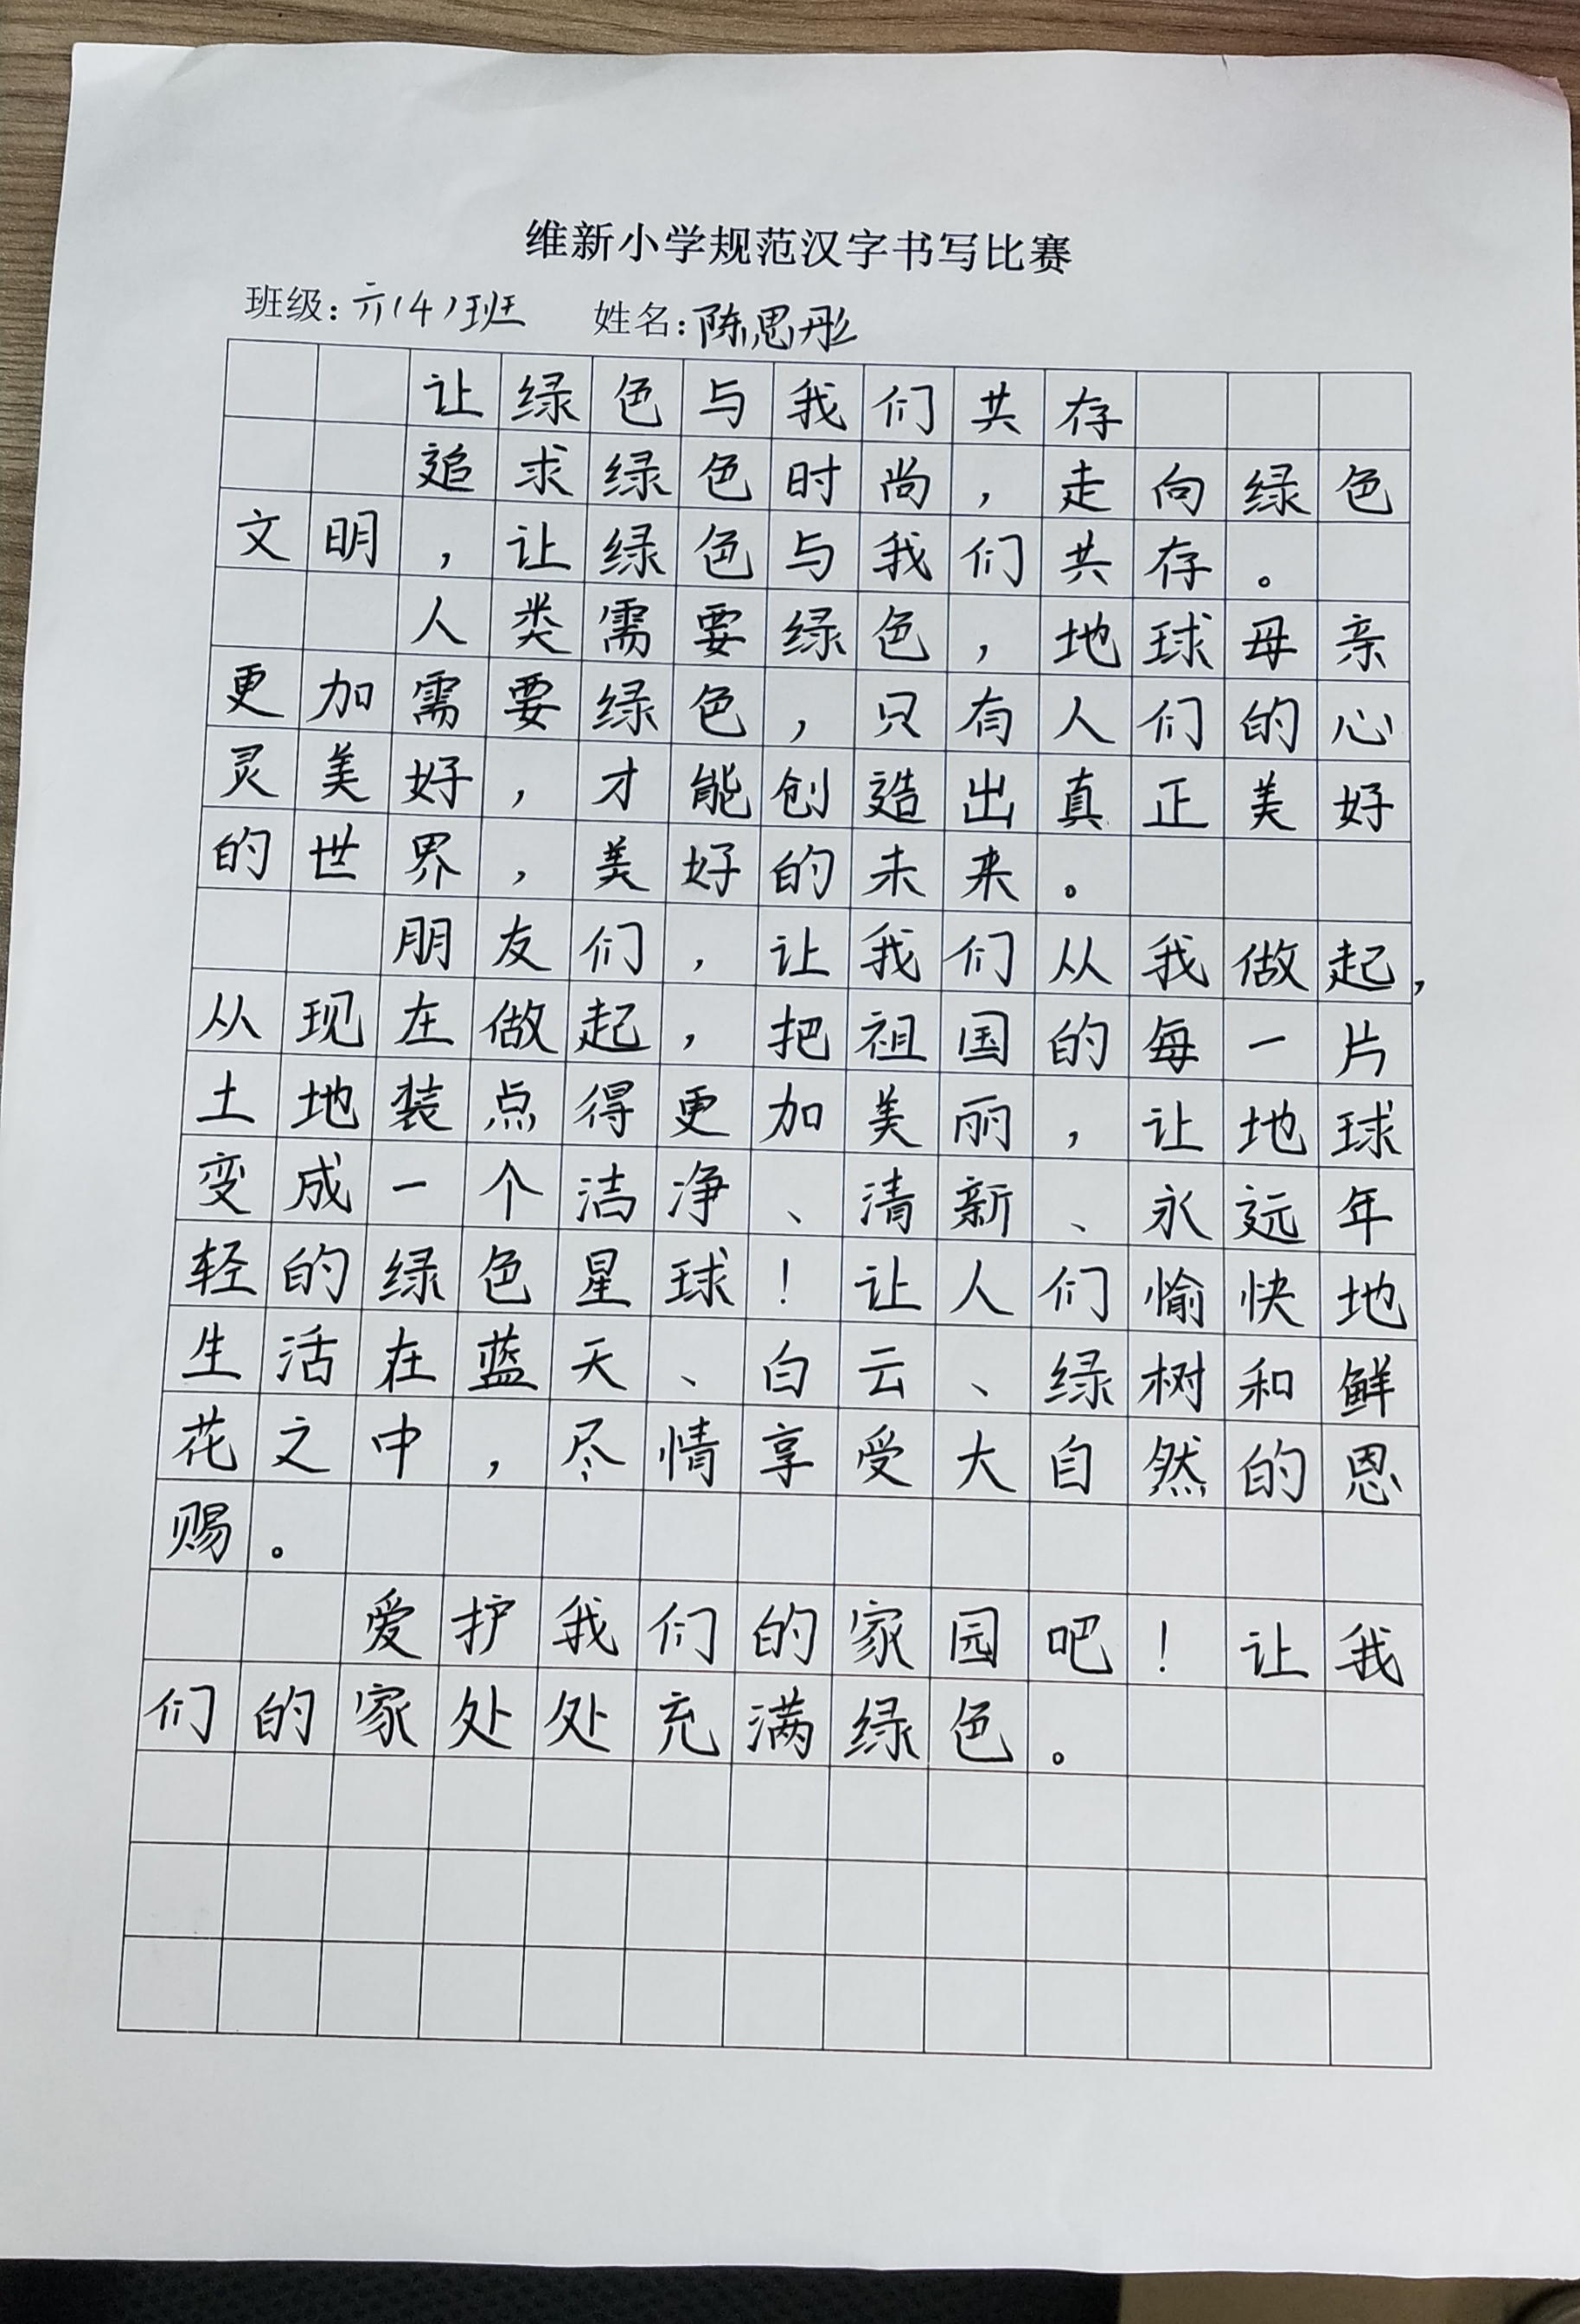 维新小学规范汉字书写比赛
班级:六(4)班 姓名:陈思彤
让绿色与我们共存
追求绿色时尚,走向绿色
文明,让绿色与我们共存。
人类需要绿色,地球母亲
更加需要绿色,只有人们的心
灵美好,才能创造出真正美好
的世界,美好的未来。
朋友们,让我们从我做起,
从现在做起,把祖国的每一片
土地装点得更加美丽,让地球
变成一个洁净、清新、永远年
轻的绿色星球!让人们愉快地
生活在蓝天、白云、绿树和鲜
花之中,尽情享受大自然的恩
赐。
爱护我们的家园吧!让我
们的家处处充满绿色。